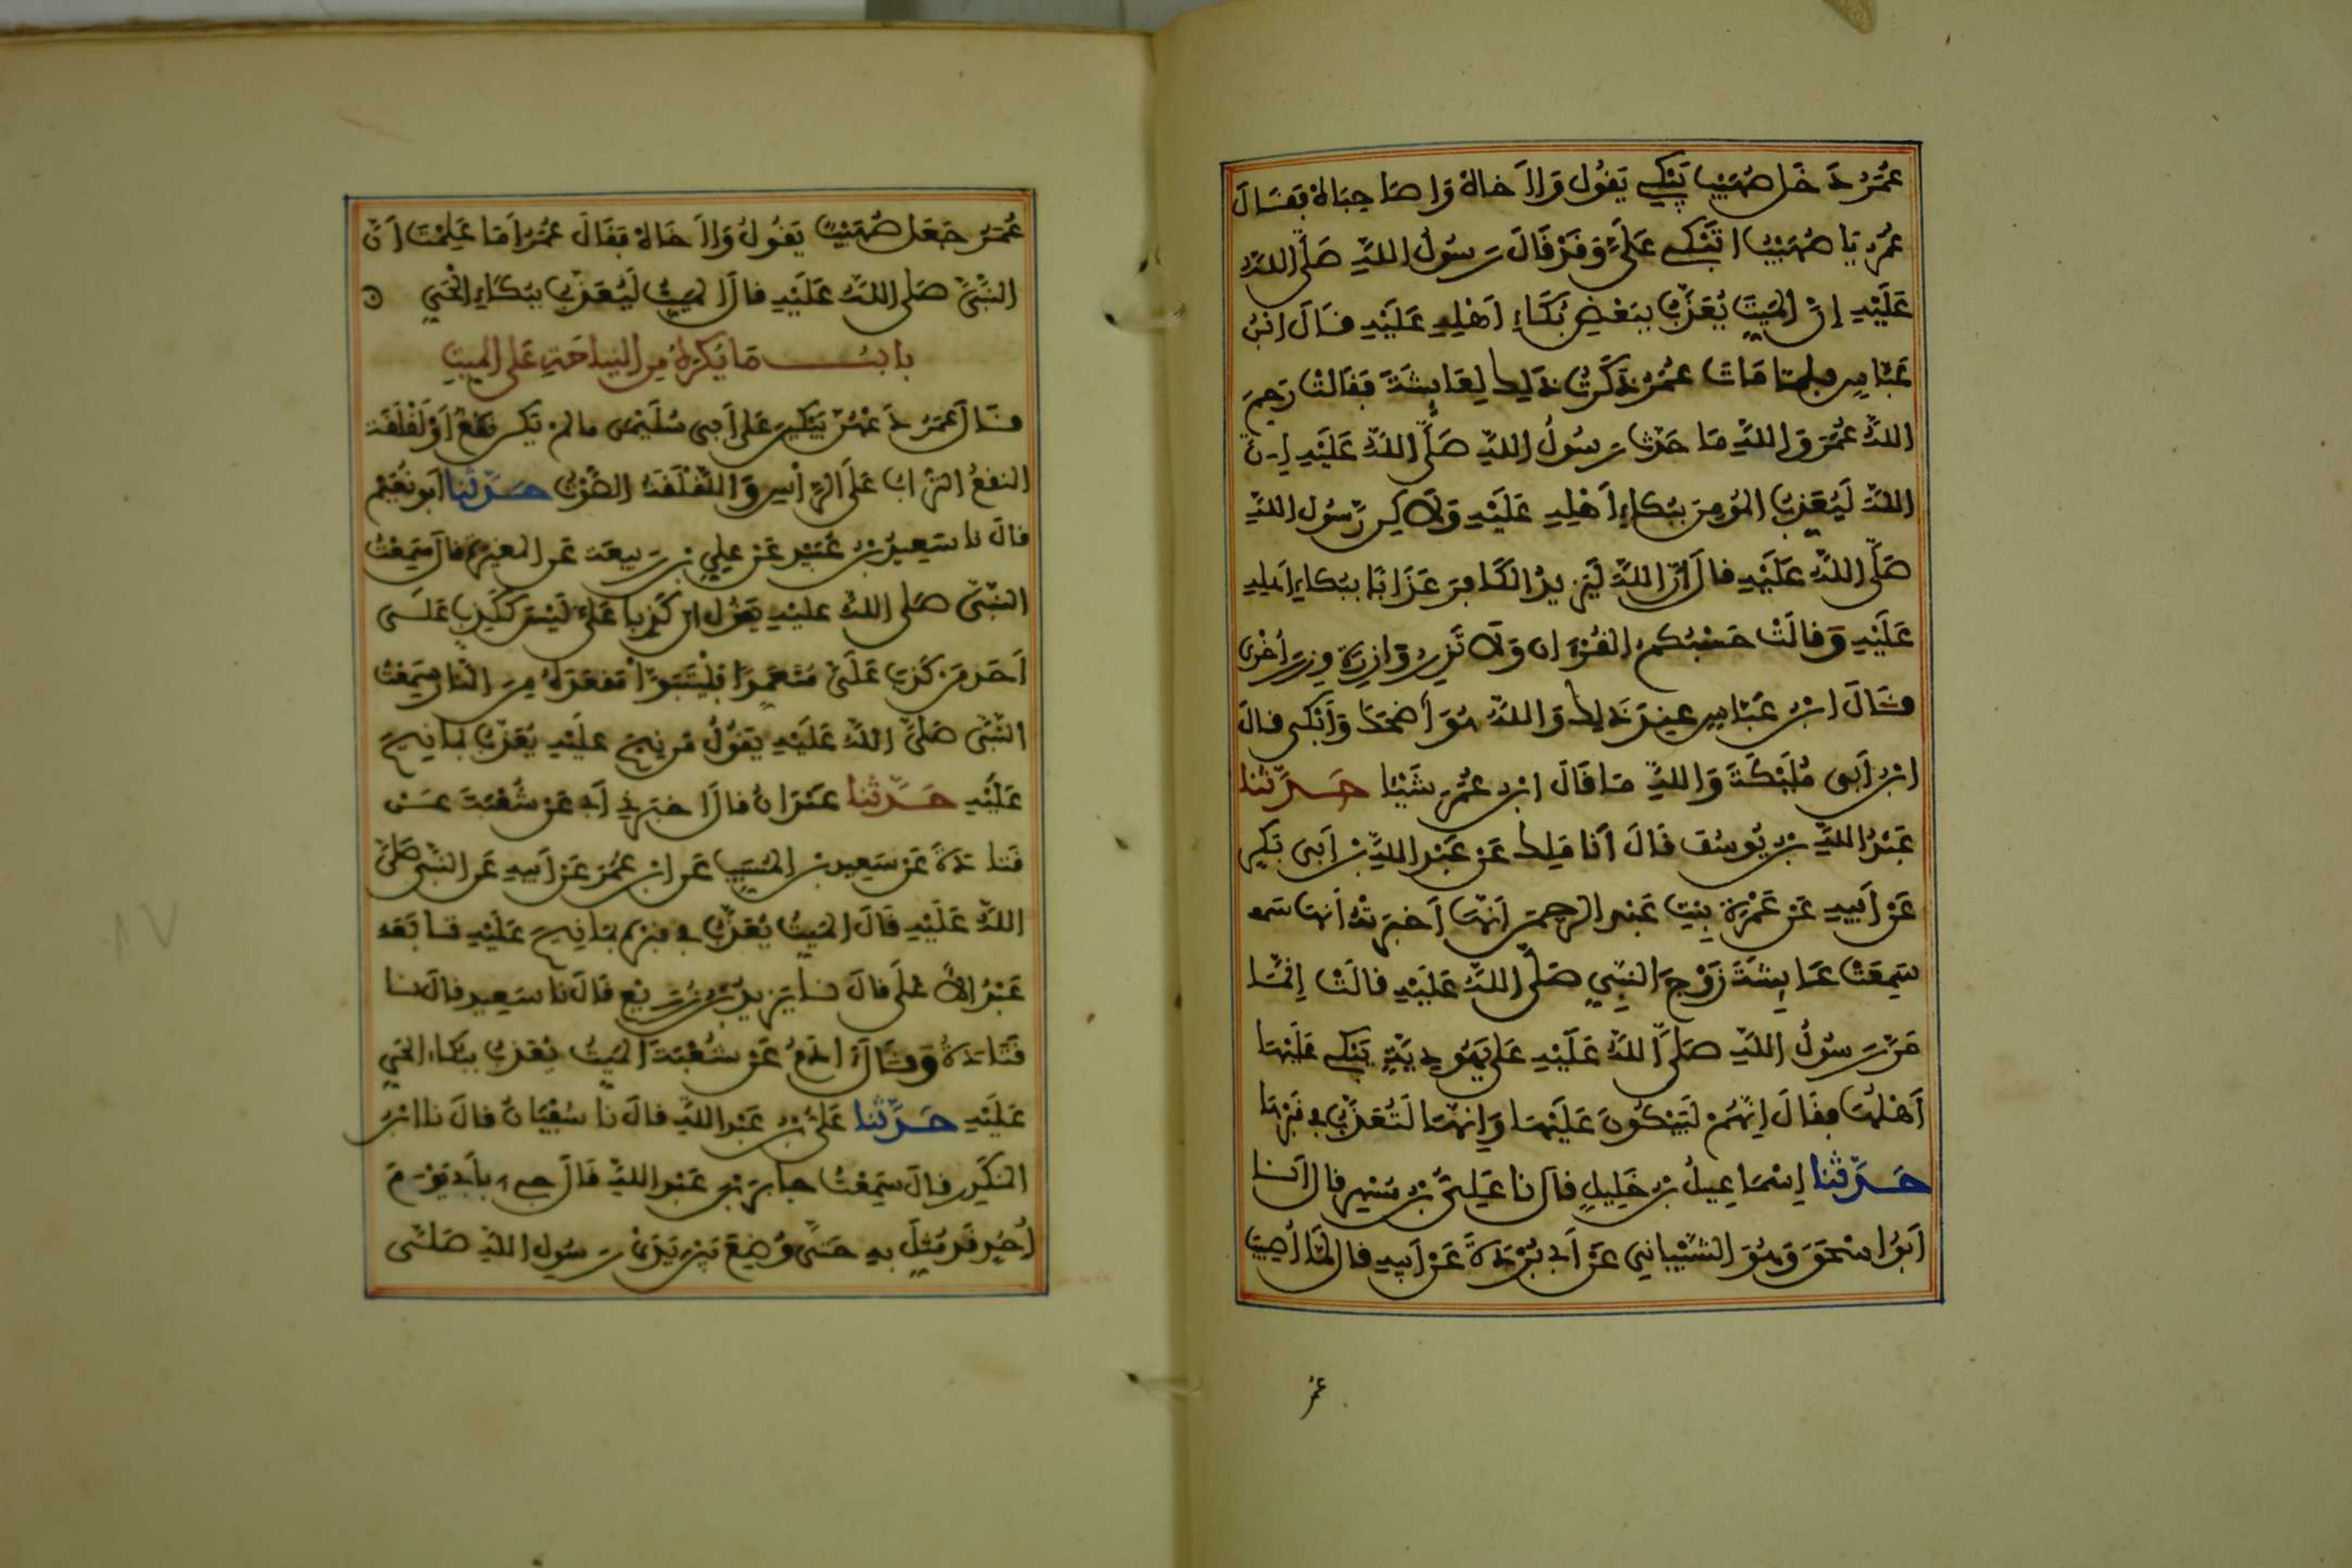 عُمَرُ دَخَلَ صُهَيْبٌ يَبْكِي يَقُولُ وَا اَخَاهْ وَا صَاحِبَاهْ فَقَالَ
عُمَرُ يَا صُهَيْبُ اتَبْكِي عَلَيَّ وَقَدْ قَالَ رَسُولُ اللهِ صَلَّى اللهُ
عَلَيْهِ إِنَّ الْمَيِّتَ يُعَذَّبُ بِبَعْضِ بُكَاءِ اَهْلِهِ عَلَيْهِ قَالَ ابْنُ
عَبَّاسٍ فلما مَاتَ عُمَرُ ذَكَرْتُ ذَلِكَ لِعَايِشَةَ فَقَالَتْ رَحِمَ
اللهُ عُمَرَ وَاللهِ مَا حَدَّثَ رَسُولُ اللهِ صَلَّى اللهُ عَلَيْهِ إِنَّ
اللهَ لَيُعَذِّبُ الْمُومِنَ بِبُكَاءِ اَهْلِهِ عَلَيْهِ وَلَاكِن رَسُول اللهِ
صَلَّى اللهُ عَلَيْهِ قالَ اِنَّ اللهَ لَيَزِيدُ الْكَافِرَ عَذَابًا بِبُكَاءِ اَهْلِهِ
عَلَيْهِ وَقالَتْ حَسْبُكُمُ الْقُرْءَان وَلَا تَزِرُ وَازِرَةٌ وِزْرَ أُخْرَى
قَالَ ابْنُ عَبَّاسٍ عِنْدَ ذَلِكَ وَاللهُ هُوَ أَضْحَكَ وَأَبْكَى قالَ
ابْنُ أَبِي مُلَيْكَةَ وَاللهِ مَا قَالَ ابْنُ عُمَرَ شَيْئًا حَدَّثَنا
عَبْدُ اللهِ بْنُ يُوسُفَ قَالَ أَنَا مَلِك عَنْ عَبْدِ اللهِ بْنِ أَبِي بَكْرٍ
عَنْ أَبِيهِ عَنْ عَمْرَةَ بِنْتِ عَبْدِ الرَّحْمَنِ أَنَّهَا أَخْبَرَتْهُ أَنَّهَا
سَمِعَتْ عَايِشَةَ زَوْجَ النَّبِيِّ صَلَّى اللهُ عَلَيْهِ قالَتْ إِنَّمَا
مَرَّ رَسُولُ اللهِ صَلَّى اللهُ عَلَيْهِ عَلَى يَهُودِيَّةٍ يَبْكِي عَلَيْهَا
أَهْلُهَا فقَالَ إِنَّهُمْ لَيَبْكُونَ عَلَيْهَا وَإِنَّهَا لَتُعَذَّبُ في قَبْرِهَا
حَدَّثَنا إِسْمَاعِيلُ بْنُ خَلِيلٍ قالَ نا عَلِيُّ بْنُ مُسْهِرٍ قالَ أَنَا
أَبُو اسْحَقَ وَهُوَ الشَّيْبَانِي عَنْ أَبِي بُرْدَةَ عَنْ أَبِيهِ قالَ لَمَّا أُصِيبَ
عُمَرُ جَعَلَ صُهَيْبٌ يَقُولُ وَا اَخَاهْ فَقَالَ عُمَرُ اَمَا عَلِمْتَ اَنَّ
النَّبِيَّ صَلَّى اللهُ عَلَيْهِ قالَ الْمَيِّتُ لَيُعَذَّبُ بِبُكَاءِ الْحَيِّ
بابُ مَا يُكْرَهُ مِنَ النِّيَاحَةِ عَلَى الْمَيِّتِ
قَالَ عُمَرُ دَعْهُنَّ يَبْكِينَ عَلَى أَبِي سُلَيْمَن مالم يَكُن نَقْعٌ أَوْ لَقْلَقَة
النقعُ التُّرَابُ عَلَى الرَّأْسِ وَاللَّقْلَقَةُ الصَّوْتُ حَدَّثَنا أَبو نُعَيْمٍ
قالَ نا سَعِيدُ بْنُ عُبَيْدٍ عَنْ عَلِيِّ بْنِ رَبِيعَة عَنِ الْمُغِيرَةِ قالَ سَمِعْتُ
النَّبِيَّ صَلَّى اللهُ عَلَيْهِ يَقُولُ اِنَّ كَذِبًا عَلَيَّ لَيْسَ كَكَذِبٍ عَلَى
أَحَدٍ مَنْ كَذَبَ عَلَيَّ مُتَعَمِّدًا فَلْيَتَبَوَّأْ مَقْعَدَهُ مِنَ النَّارِ سَمِعْتُ
النَّبِيَّ صَلَّى اللهُ عَلَيْهِ يَقُولُ مَنْ نِيحَ عَلَيْهِ يُعَذَّبُ بِمَا نِيحَ
عَلَيْهِ حَدَّثَنا عَبْدَانُ قالَ أَخْبَرَنِي أَبِي عَنْ شُعْبَةَ عَنْ
قَتادَةَ عَنْ سَعِيدِ بْنِ الْمُسَيِّبِ عَنِ ابْنِ عُمَرَ عَنْ أَبِيهِ عَنِ النَّبِيِّ صَلَّى
اللهُ عَلَيْهِ قَالَ الْمَيِّتُ يُعَذَّبُ في قبره بمَا نِيحَ عَلَيْهِ تَابَعَه
عَبْدُ الأَعْلَى قالَ نا يَزِيدُ بْنُ زُرَيْعٍ قَالَ نا سَعِيدٌ قالَ نا
قَتَادَةُ وَقَالَ اٰدَمُ عَنْ شُعْبَةَ الْمَيِّتُ يُعَذَّبُ بِبُكَاءِ الْحَيِّ
عَلَيْهِ حَدَّثَنا عَلِيُّ بْنُ عَبْدِ اللهِ قالَ نا سُفْيَانُ قالَ نا ابْنُ
الْمُنْكَدِرِ قالَ سَمِعْتُ جابِرَ بْنَ عَبْدِ اللهِ قَالَ جِيءَ بِأَبِي يَوْمَ
أُحُدٍ قَد مُثِّلَ بِهِ حَتَّى وُضِعَ بَيْنَ يَدَيْ رَسُولِ اللهِ صَلَّى